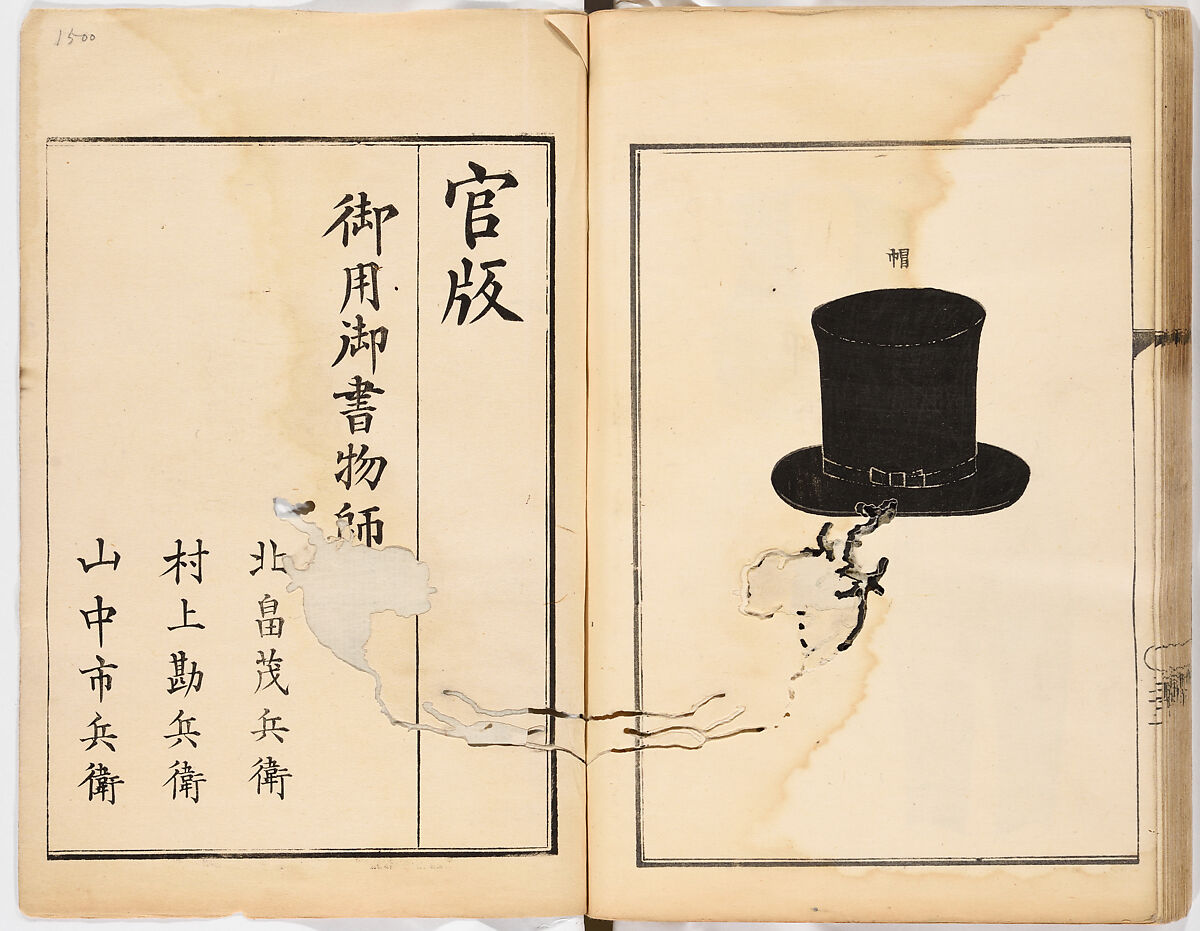 帽
官版
御用御書物師
北畠茂兵衛
村上勘兵衛
山中市兵衛
1500